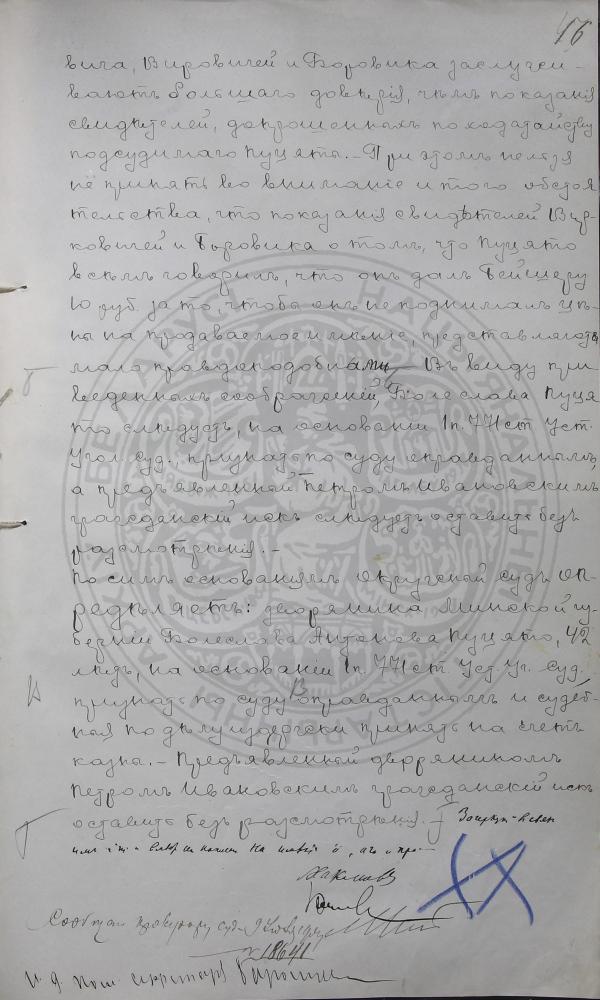 46
вича, Вировичей и Боровика заслужи-
ваютъ большаго довѣрія, чѣмъ показанія
свидѣтелей, допрошенныхъ по ходатайству
подсудимаго Пуцяты. – При этомъ нельзя
не принять во вниманіе и того обстоя
тельства, что показанія свидѣтелей Вир-
ковичей и Боровика о томъ, что Пуцято
всѣмъ говорилъ, что онъ далъ Бейшеру
10 руб. за то, чтобы онъ не поднималъ цѣ-
ны на продаваемое имѣніе, представляются
мало правдоподобными – Въ виду при
веденныхъ соображеній, Болеслава Пуця
то слѣдуетъ, на основаніи 1 п. 771 ст. Уст.
Угол. Суд., признать по суду оправданнымъ,
а предъявленный Петромъ Ивановскимъ
гражданскій искъ слѣдуетъ оставить безъ
разсмотрѣнія. –
По симъ основаніямъ Окружной судъ оп-
редѣляетъ: дворянина Минской гу-
берніи Болеслава Антонова Пуцято, 42
лѣтъ, на основаніи 1 п. 771 ст. Уст. Уг. Суд.
признать по суду оправданнымъ и судеб-
ныя по дѣлу издержки принять на счетъ
казны. – Предъявленный дворяниномъ
Петромъ Ивановскимъ гражданскій искъ
оставить безъ разсмотрѣнія.
Сообщ. прокурору суда
№ 18641
И. д. пом. секретаря